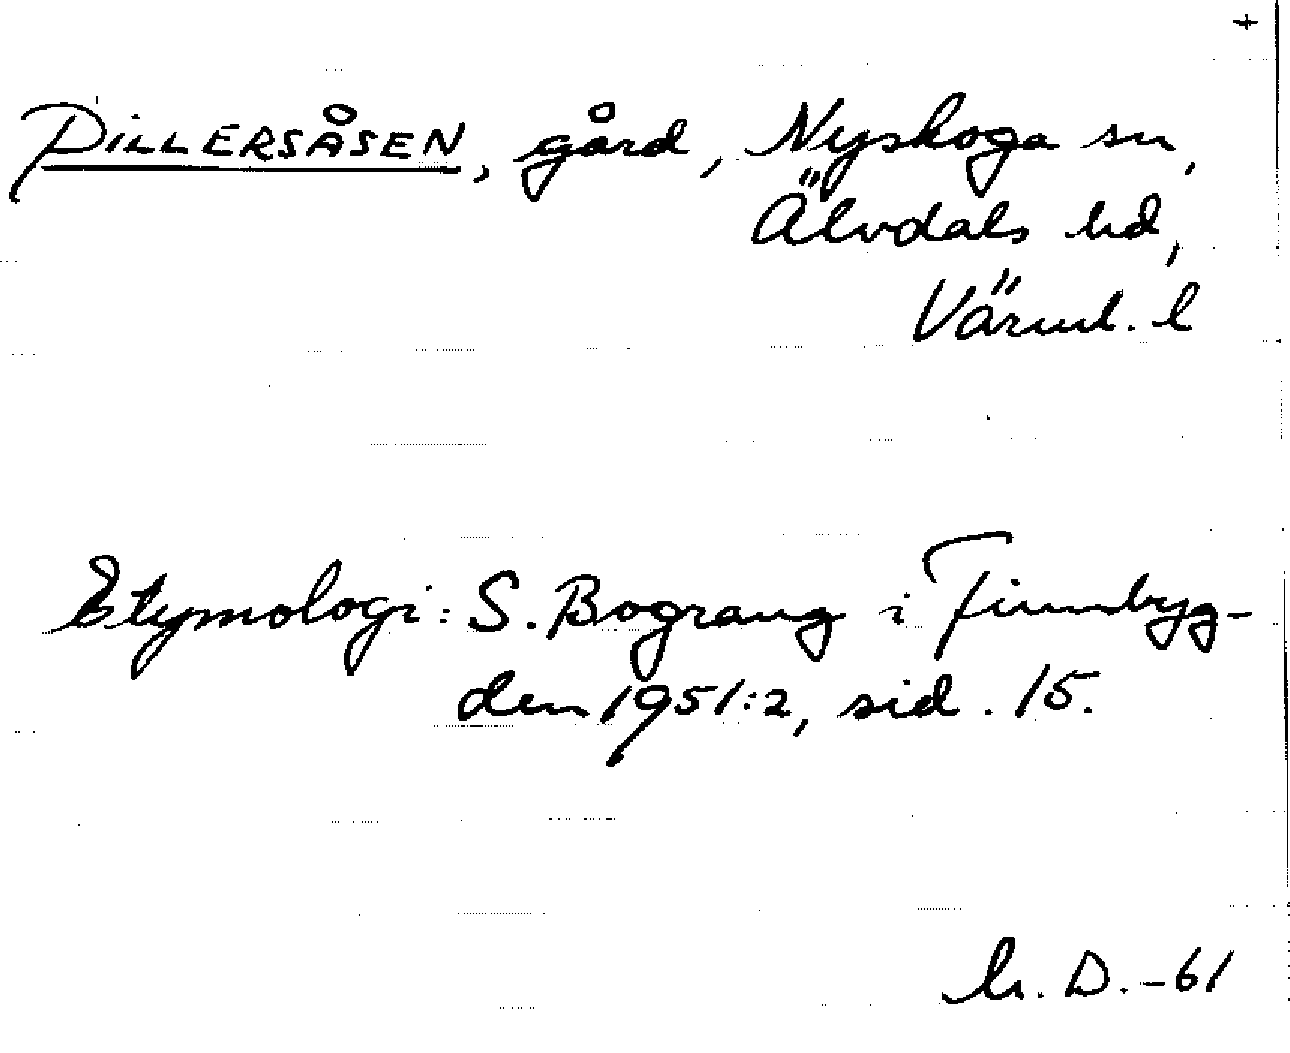 +
PILLERSÅSEN, gård, Nyskoga sn,
Älvdals hd,
Värml. l
Etymologi: S. Bograng i Finnbyg-
den 1951:2, sid. 15.
D. -61